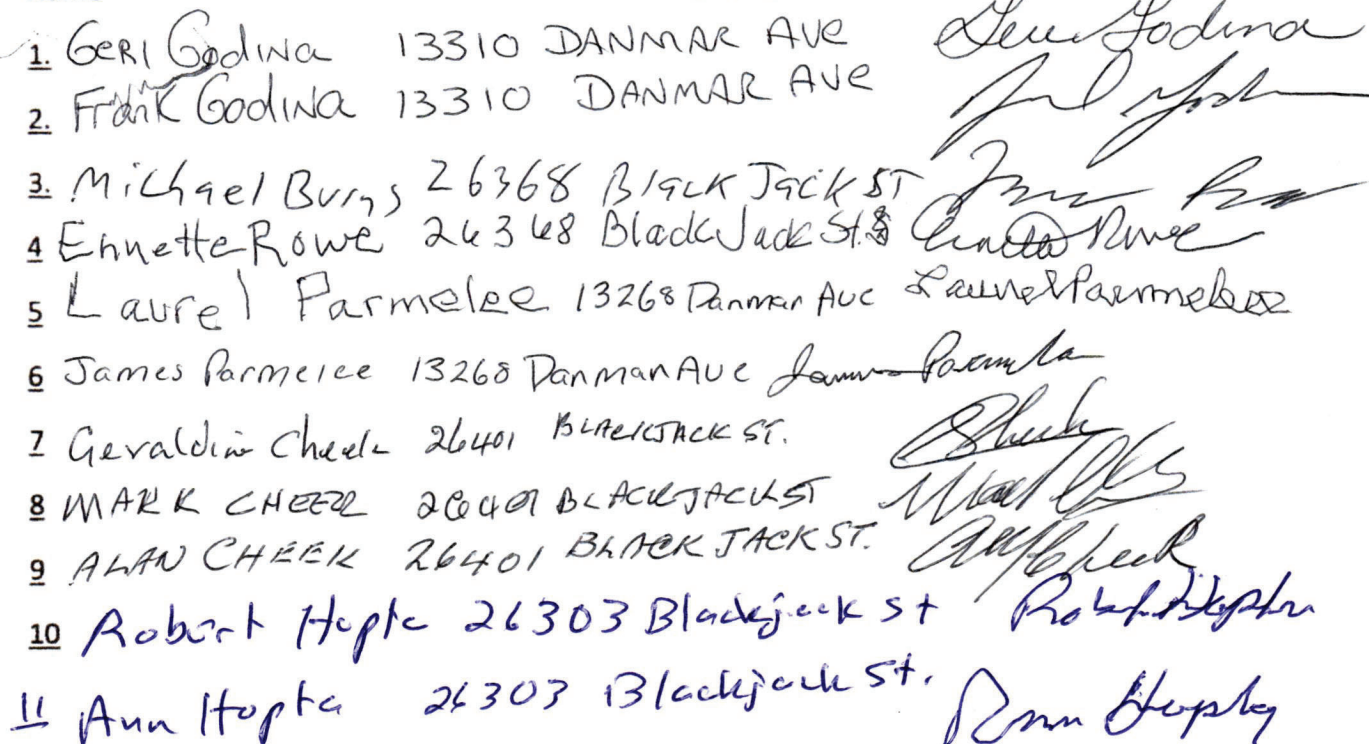 1. GERI GODINA 13310 DANMAR AVE Geri Godina
2. Frank Godina 13310 DANMAR AVE
3. Michael Burns 26368 Black Jack ST
4 Ennette Rowe 26368 Black Jack St. Ennette Rowe
5 Laurel Parmelee 13268 Danmar Ave Laurel Parmelee
6 James Parmelee 13268 Danmar Ave James Parmelee
7 Geraldin Cheek 26401 BLACKJACK ST. GCheek
8 MARK CHEEK 26401 BLACKJACK ST
9 ALAN CHEEK 26401 BLACK JACK ST. Cheek
10 Robert Hopta 26303 Blackjack St Robert
11 Ann Hopta 26303 Blackjack St. Ann